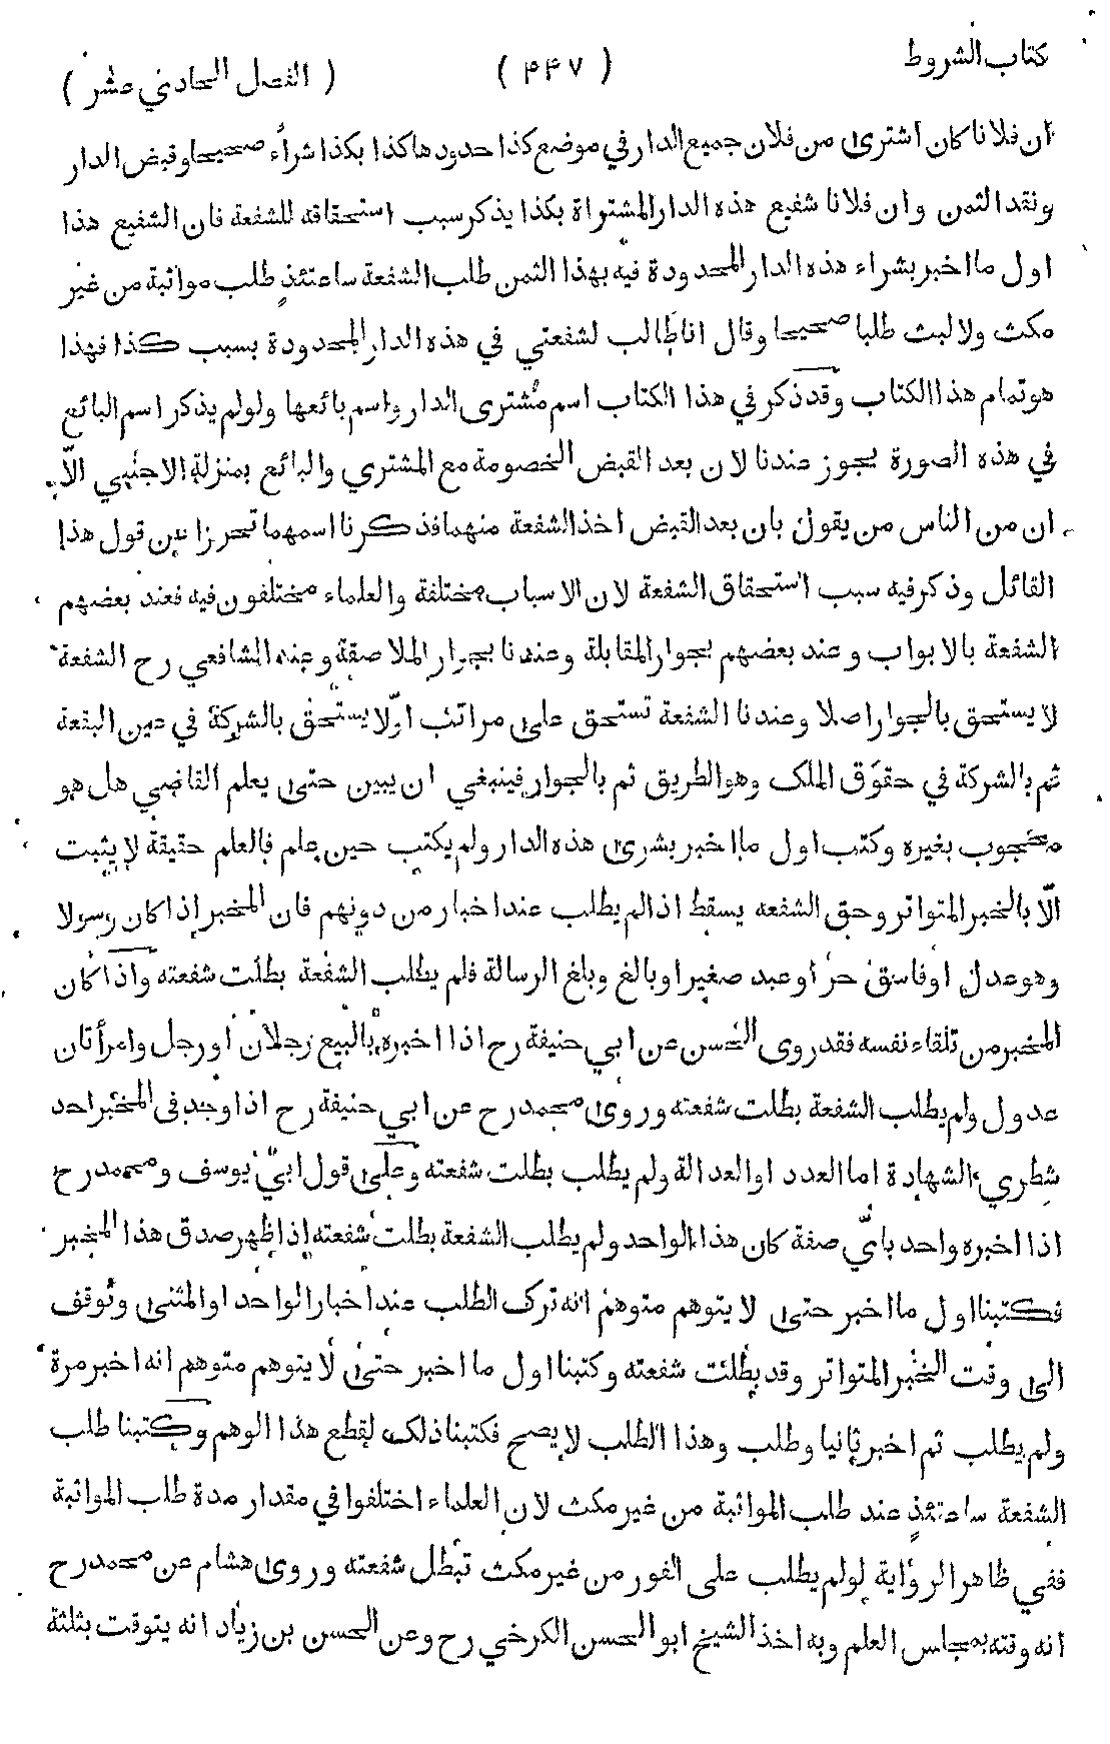 كتاب الشروط
( ۴۴۷ )
( الفصل الحادي عشر )
ان فلانا كان اشترى من فلان جميع الدار في موضع كذا حدودها كذا بكذا شراء صحيحا وقبض الدار
ونقد الثمن وان فلانا شفيع هذه الدار المشتراة بكذا يذكر سبب استحقاقه للشفعة فان الشفيع هذا
اول ما اخبر بشراء هذه الدار المحدودة فيه بهذا الثمن طلب الشفعة ساعتئذ طلب مواثبة من غير
مكث ولا لبث طلبا صحيحا وقال انا طالب لشفعتي في هذه الدار المحدودة بسبب كذا فهذا
هو تمام هذا الكتاب وقد ذكر في هذا الكتاب اسم مشترى الدار واسم بائعها ولو لم يذكر اسم البائع
في هذه الصورة يجوز عندنا لان بعد القبض الخصومة مع المشتري والبائع بمنزلة الاجنبي الّا
ان من الناس من يقول بان بعد القبض اخذ الشفعة منهما فذكرنا اسمهما تحرزا عن قول هذا
القائل وذكر فيه سبب استحقاق الشفعة لان الاسباب مختلفة والعلماء مختلفون فيه فعند بعضهم
الشفعة بالابواب وعند بعضهم بجوار المقابلة وعندنا بجوار الملاصقة وعند الشافعي رح الشفعة
لا يستحق بالجوار اصلا وعندنا الشفعة تستحق على مراتب اوّلا يستحق بالشركة في عين البقعة
ثم بالشركة في حقوق الملك وهو الطريق ثم بالجوار فينبغي ان يبين حتى يعلم القاضي هل هو
محجوب بغيره وكتب اول ما اخبر بشرى هذه الدار ولم يكتب حين علم فالعلم حقيقة لا يثبت
الّا بالخبر المتواتر وحق الشفعه يسقط اذا لم يطلب عند اخبار من دونهم فان المخبر اذا كان رسولا
وهو عدل اوفاسق حر او عبد صغير او بالغ وبلغ الرسالة فلم يطلب الشفعة بطلت شفعته واذا كان
المخبر من تلقاء نفسه فقد روى الحسن عن ابي حنيفة رح اذا اخبره بالبيع رجلان او رجل وامرأتان
عدول ولم يطلب الشفعة بطلت شفعته وروى محمد رح عن ابي حنيفة رح اذا وجد فى المخبر احد
شطري الشهادة اما العدد او العدالة ولم يطلب بطلت شفعته وعلى قول ابي يوسف ومحمد رح
اذا اخبره واحد بايّ صفة كان هذا الواحد ولم يطلب الشفعة بطلت شفعته اذا ظهر صدق هذا المخبر
فكتبنا اول ما اخبر حتى لا يتوهم متوهم انه ترك الطلب عند اخبار الواحد او المثنى وتوقف
الى وقت الخبر المتواتر وقد بطلت شفعته وكتبنا اول ما اخبر حتى لا يتوهم متوهم انه اخبر مرة
ولم يطلب ثم اخبر ثانيا وطلب وهذا الطلب لا يصح فكتبنا ذلك لقطع هذا الوهم وكتبنا طلب
الشفعة ساعتئذ عند طلب المواثبة من غير مكث لان العلماء اختلفوا في مقدار مدة طلب المواثبة
ففي ظاهر الرواية لو لم يطلب على الفور من غير مكث تبطل شفعته وروى هشام عن محمد رح
انه وقته بمجلس العلم وبه اخذ الشيخ ابو الحسن الكرخي رح وعن الحسن بن زياد انه يتوقت بثلثة